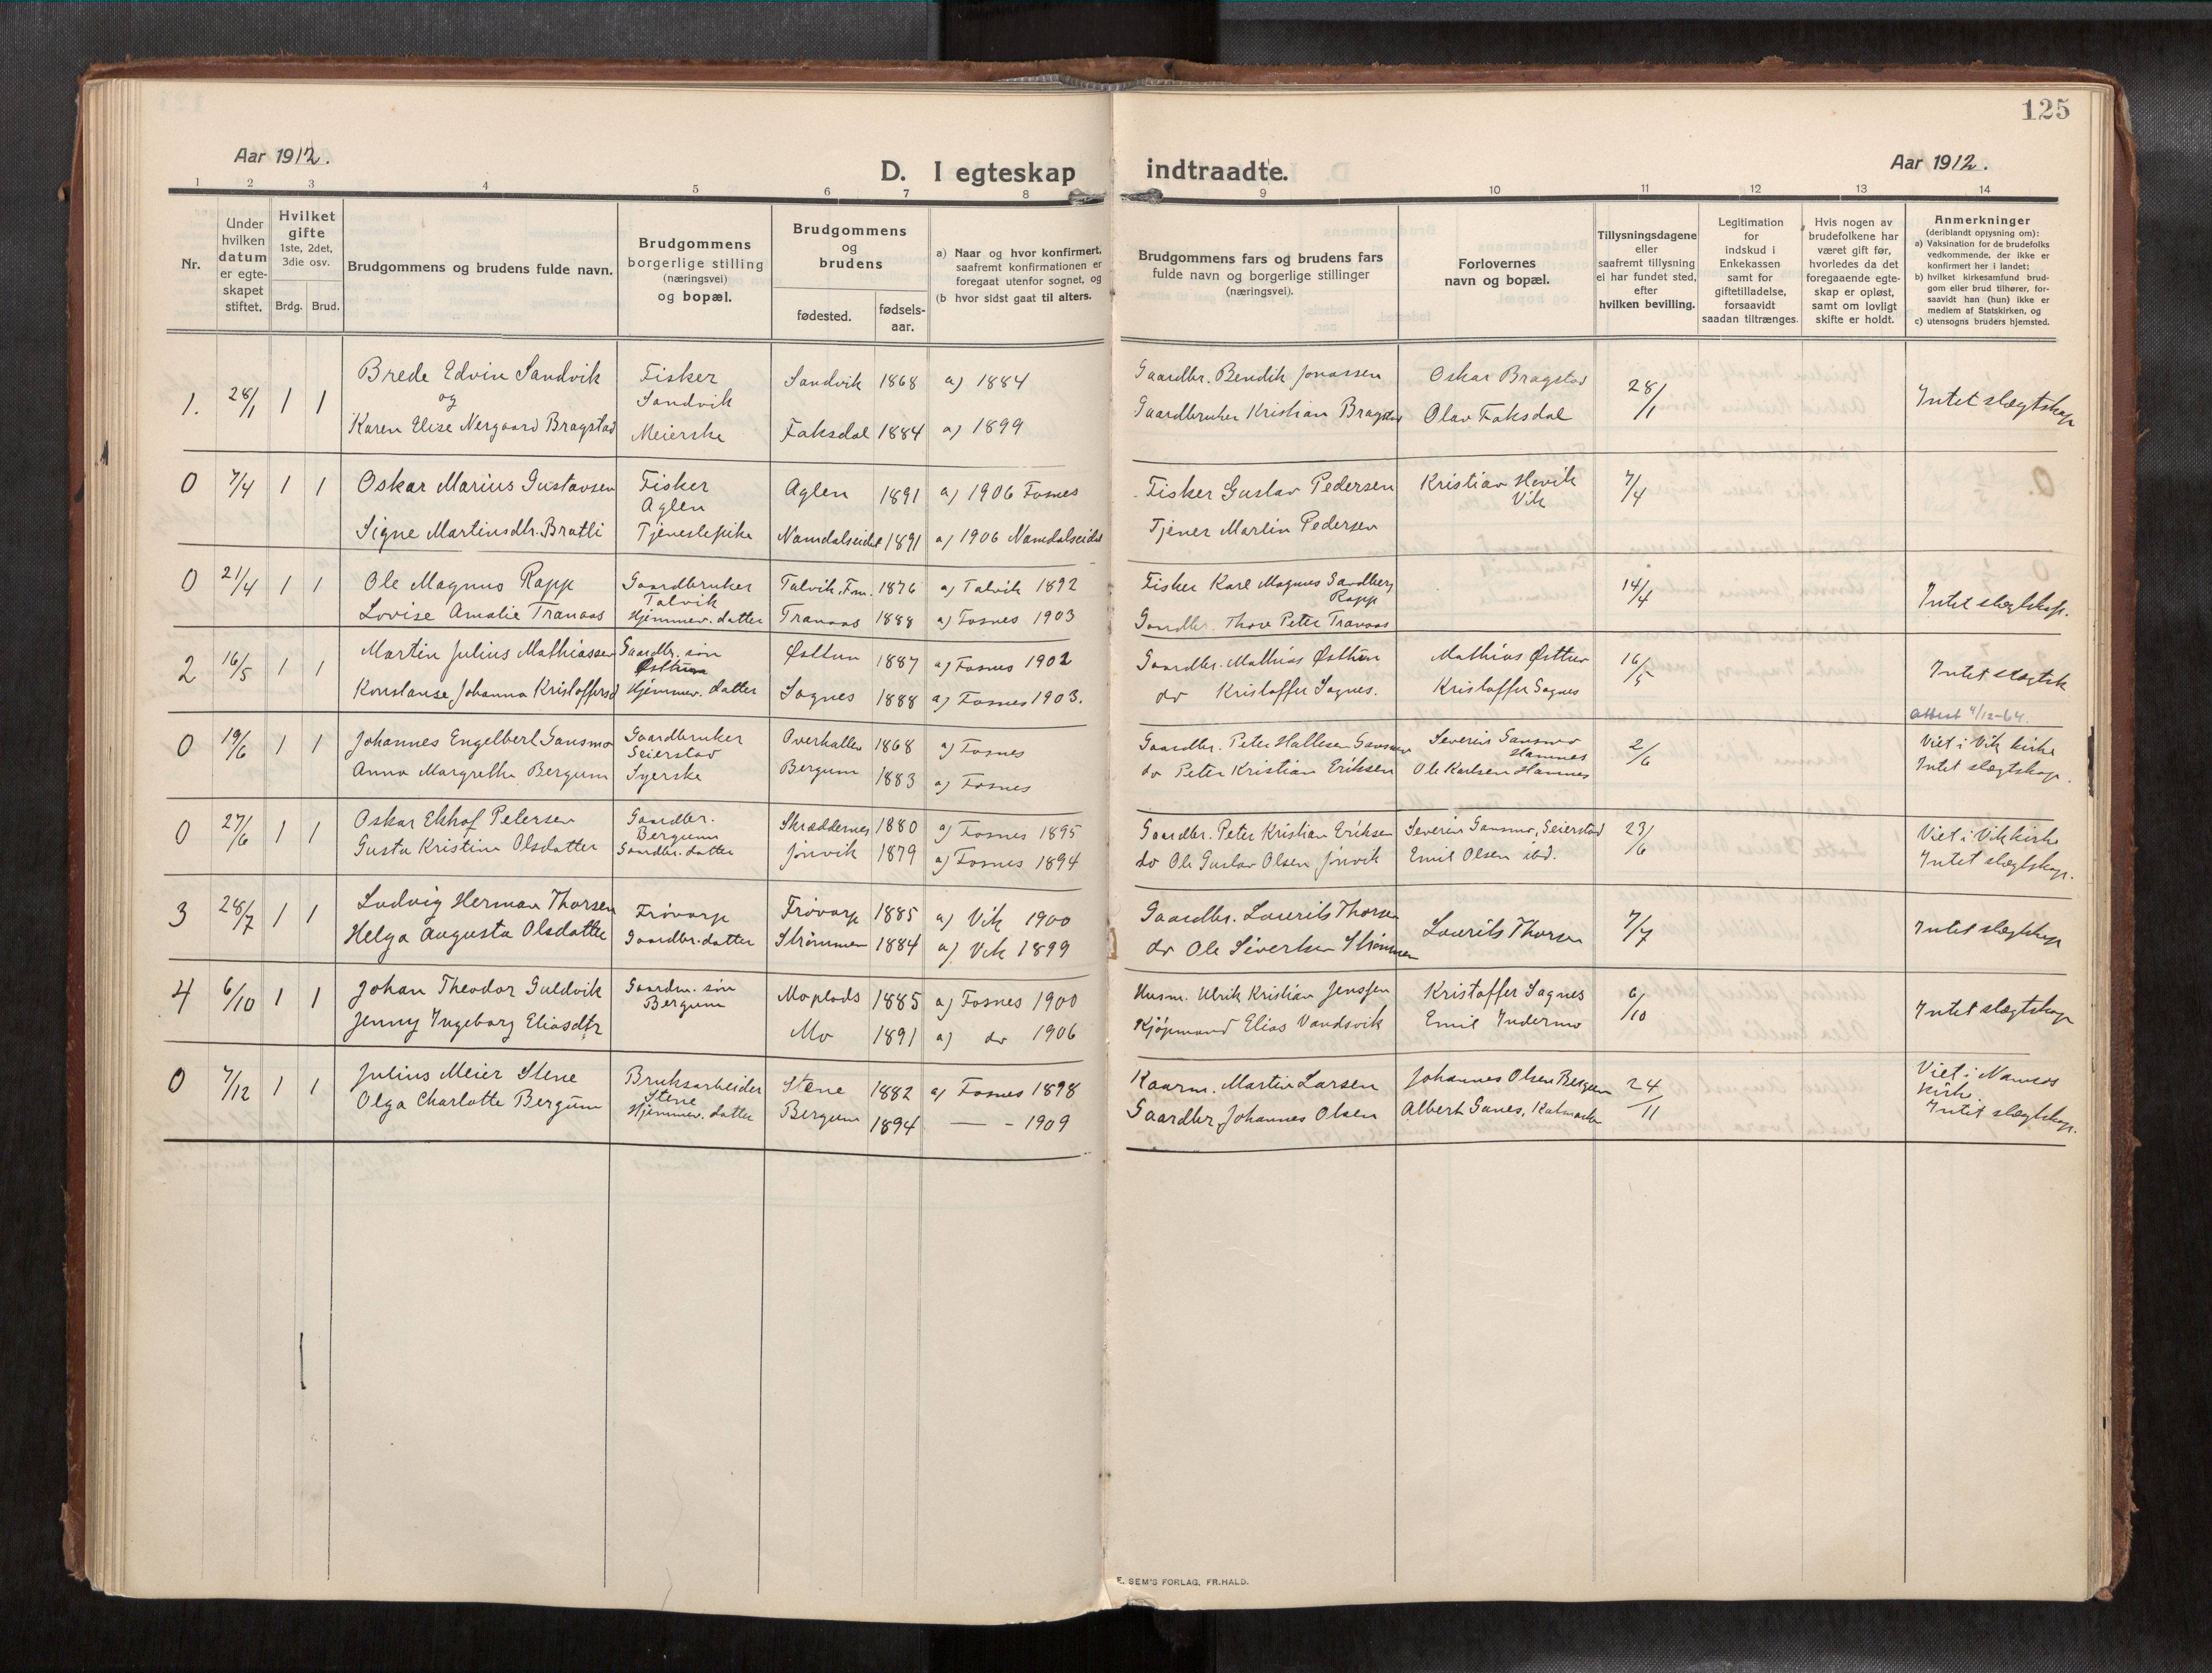 125
Aar 1912.
D. I egteskap indtraadte.
Aar 1912.
1 2 3 4 5 6 7 8 9 10 11 12 13 14
Nr.
Under hvilken datum er egteskapet stiftet.
Hvilket gifte 1ste, 2det, 3die osv.
Brdg. Brud.
Brudgommens og brudens fulde navn.
Brudgommens borgerlige stilling (næringsvei) og bopæl.
Brudgommens og brudens
fødested. fødselsaar.
a) Naar og hvor konfirmert, saafremt konfirmationen er foregaat utenfor sognet, og
(b hvor sidst gaat til alters.
Brudgommens fars og brudens fars fulde navn og borgerlige stillinger (næringsvei).
Forlovernes navn og bopæl.
Tillysningsdagene eller saafremt tillysning ei har fundet sted, efter hvilken bevilling.
Legitimation for indskud i Enkekassen samt for giftetilladelse, forsaavidt saadan tiltrænges.
Hvis nogen av brudefolkene har været gift før, hvorledes da det foregaaende egteskap er opløst, samt om lovligt skifte er holdt.
Anmerkninger (deriblandt opjysning om):
a) Vaksination for de brudefolks vedkommende, der ikke er konfirmert her i landet;
b) hvilket kirkesamfund brudgom eller brud tilhører, forsaavidt han (hun) ikke er medlem af Statskirken, og
c) utensogns bruders hjemsted.
1. 28/1 1 1 Brede Edvin Sandvik Fisker Sandvik Sandvik 1868 a) 1884 Gaardbr. Bendik Jonassen Oskar Bragstad 28/1 Intet slægtskap
og
Karen Elise Nergaard Bragstad Meierske Faksdal 1884 a) 1899 Gaardbruker Kristian Bragstad Olav Faksdal
0 7/4 1 1 Oskar Marius Gustavsen Fisker Aglen Aglen 1891 a) 1906 Fosnes Fisker Gustav Pedersen Kristian Hevik Vik 7/4
Signe Martinsdtr. Bratli Tjenestepike Namdalseidet 1891 a) 1906 Namdalseidet Tjener Martin Pedersen
0 21/4 1 1 Ole Magnus Rapp Gaardbruker Talvik Talvik, Fm. 1876 a) Talvik 1892 Fisker Karl Magnus Sandberg Rapp 14/4 Intet slegtskap.
Lovise Amalie Tranaas Hjemmev. datter Tranaas 1888 a) Fosnes 1903 Gaardbr. Thore Peter Tranaas
2 16/5 1 1 Martin Julius Mathiassen Gaardbr. søn Østtun Østtun 1887 a) Fosnes 1902 Gaardbr. Mathias Østtun Mathias Østtun 16/5 Intet slægtsk
Konstanse Johanna Kristoffersd Hjemmev. datter Sagnes 1888 a) Fosnes 1903. do Kristoffer Sagnes. Kristoffer Sagnes
Attest 4/12-64.
0 19/6 1 1 Johannes Engelbert Gansmo Gaardbruker Seierstad Overhallen 1868 a) Fosnes Gaardbr. Peter Hallesen Gansmo Severin Gansmo Hamnes 2/6 Viet i Vik kirke
Anna Margrethe Bergum Syerske Bergum 1883 a) Fosnes do Peter Kristian Eriksen Ole Karlsen Hamnes Intet slægtskap.
0 27/6 1 1 Oskar Ekhof Petersen Gaardbr. Bergum Skræddernes 1880 a) Fosnes 1895 Gaardbr. Peter Kristian Eriksen Severin Gansmo, Seierstad 23/6 Viet i Vik kirke
Gusta Kristine Olsdatter Gaardbr. datter Jønvik 1879 a) Fosnes 1894 do Ole Gustav Olsen Jønvik Emil Olsen ibd. Intet slægtskap.
3 28/7 1 1 Ludvig Herman Thorsen Frøvarp Frøvarp 1885 a) Vik 1900 Gaardbr. Laurits Thorsen Laurits Thorsen 7/7 Intet slegtskap
Helga Augusta Olsdatter Gaardbr. datter Strømmen 1884 a) Vik 1899 do Ole Sivertsen Strømmen
4 6/10 1 1 Johan Theodor Guldvik Gaardm. søn Bergum Moplads 1885 a) Fosnes 1900 Husm. Ulrik Kristian Jenssen Kristoffer Sagnes 6/10 Intet slægtskap
Jenny Ingeborg Eliasdtr Mo 1891 a) do 1906 Kjøpmand Elias Vandsvik Emil Indermo
0 7/12 1 1 Julius Meier Stene Bruksarbeider Stene Stene 1882 a) Fosnes 1898 Kaarm. Martin Larsen Johannes Olsen Bergum 24/11 Viet i Namsos kirke.
Olga Charlotte Bergum Hjemmev. datter Bergum 1894 — - 1909 Gaardbr. Johannes Olsen Albert Sanes, Intet slegtskap.
E. SEM'S FORLAG, FR.HALD.